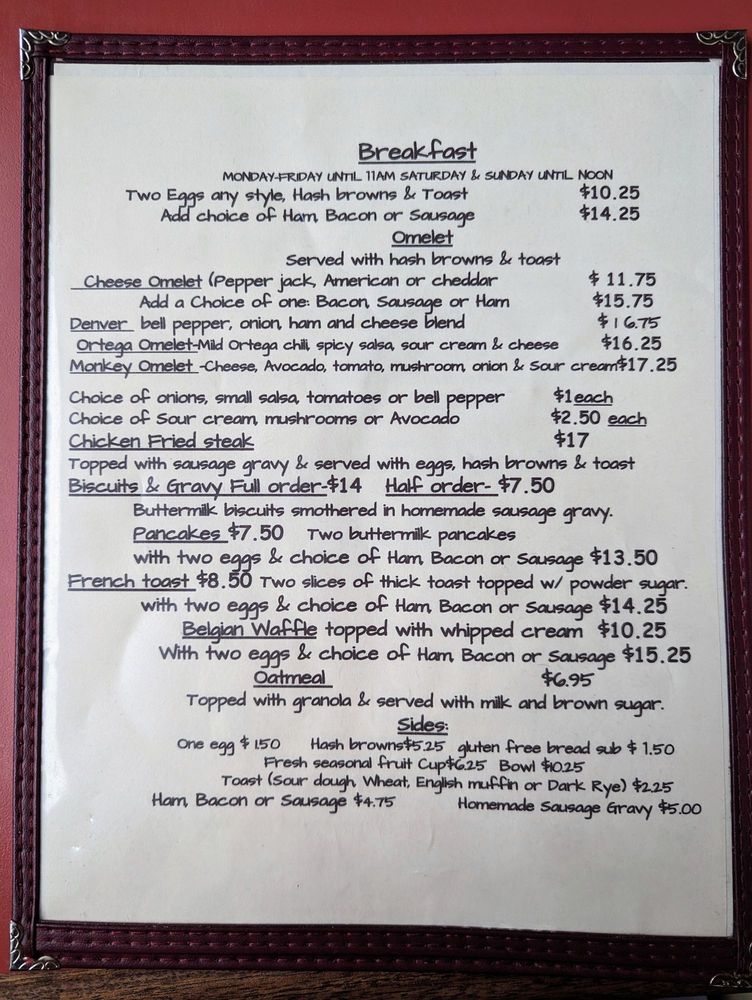 Breakfast
MONDAY-FRIDAY UNTIL 11AM SATURDAY & SUNDAY UNTIL NOON
Two Eggs any style, Hash browns & Toast $10.25
Add choice of Ham, Bacon or Sausage $14.25
Omelet
Served with hash browns & toast
Cheese Omelet (Pepper jack, American or cheddar $ 11.75
Add a Choice of one: Bacon, Sausage or Ham $15.75
Denver bell pepper, onion, ham and cheese blend $ 16.75
Ortega Omelet-Mild Ortega chili, spicy salsa, sour cream & cheese $16.25
Monkey Omelet -Cheese, Avocado, tomato, mushroom, onion & Sour cream$17.25
Choice of onions, small salsa, tomatoes or bell pepper $1each
Choice of Sour cream, mushrooms or Avocado $2.50 each
Chicken Fried steak $17
Topped with sausage gravy & served with eggs, hash browns & toast
Biscuits & Gravy Full order-$14 Half order- $7.50
Buttermilk biscuits smothered in homemade sausage gravy.
Pancakes $7.50 Two buttermilk pancakes
with two eggs & choice of Ham, Bacon or Sausage $13.50
French toast $8.50 Two slices of thick toast topped w/ powder sugar.
with two eggs & choice of Ham, Bacon or Sausage $14.25
Belgian Waffle topped with whipped cream $10.25
With two eggs & choice of Ham, Bacon or Sausage $15.25
Oatmeal $6.95
Topped with granola & served with milk and brown sugar.
Sides:
One egg $ 1.50 Hash browns$5.25 gluten free bread sub $ 1.50
Fresh seasonal fruit Cup$6.25 Bowl $10.25
Toast (Sour dough, Wheat, English muffin or Dark Rye) $2.25
Ham, Bacon or Sausage $4.75 Homemade Sausage Gravy $5.00